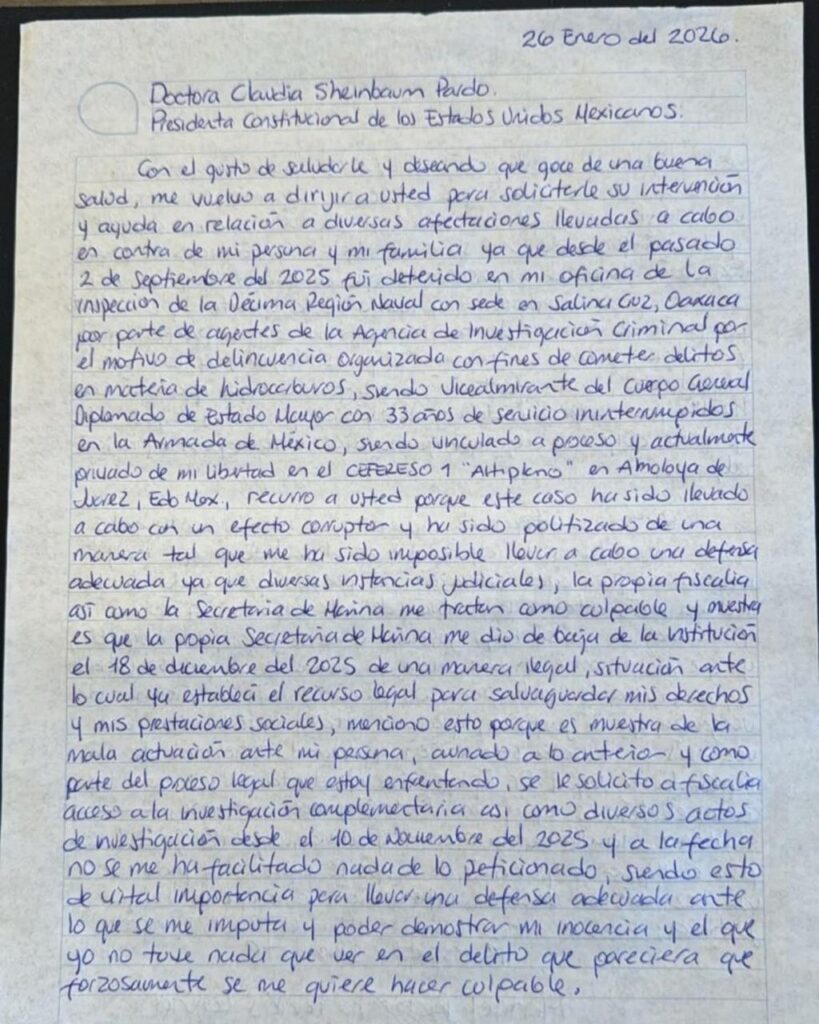 26 Enero del 2026.
Doctora Claudia Sheinbaum Pardo.
Presidenta Constitucional de los Estados Unidos Mexicanos.
Con el gusto de saludarle y deseando que goce de una buena
salud, me vuelvo a dirijir a usted para solicitarle su intervención
y ayuda en relación a diversas afectaciones llevadas a cabo
en contra de mi persona y mi familia ya que desde el pasado
2 de septiembre del 2025 fui detenido en mi oficina de la
inspección de la Décima Región Naval con sede en Salina Cruz, Oaxaca
por parte de agentes de la Agencia de Investigación Criminal por
el motivo de delincuencia organizada con fines de cometer delitos
en materia de hidrocarburos, siendo Vicealmirante del Cuerpo General
Diplomado de Estado Mayor con 33 años de servicio ininterrumpidos
en la Armada de México, siendo vinculado a proceso y actualmente
privado de mi libertad en el CEFERESO 1 "Altiplano" en Almoloya de
Juarez, Edo Mex., recurro a usted porque este caso ha sido llevado
a cabo con un efecto corruptor y ha sido politizado de una
manera tal que me ha sido imposible llevar a cabo una defensa
adecuada ya que diversas instancias judiciales, la propia fiscalia
así como la Secretaria de Marina me tratan como culpable y muestra
es que la popia Secretaria de Marina me dio de baja de la institución
el 18 de diciembre del 2025 de una manera ilegal, situación ante
lo cual ya establecí el recurso legal para salvaguardar mis derechos
y mis prestaciones sociales, menciono esto porque es muestra de la
mala actuación ante mi persona, aunado a lo anterior y como
parte del proceso legal que estoy enfrentando, se le solicito a fiscalia
acceso a la investigación complementaria asi como diversos actos
de investigación desde el 10 de Noviembre del 2025 y a la fecha
no se me ha facilitado nada de lo peticionado, siendo esto
de vital importancia para llevar una defensa adecuada ante
lo que se me imputa y poder demostrar mi inocencia y el que
yo no tuve nada que ver en el delito que pareciera que
forzosamente se me quiere hacer culpable.